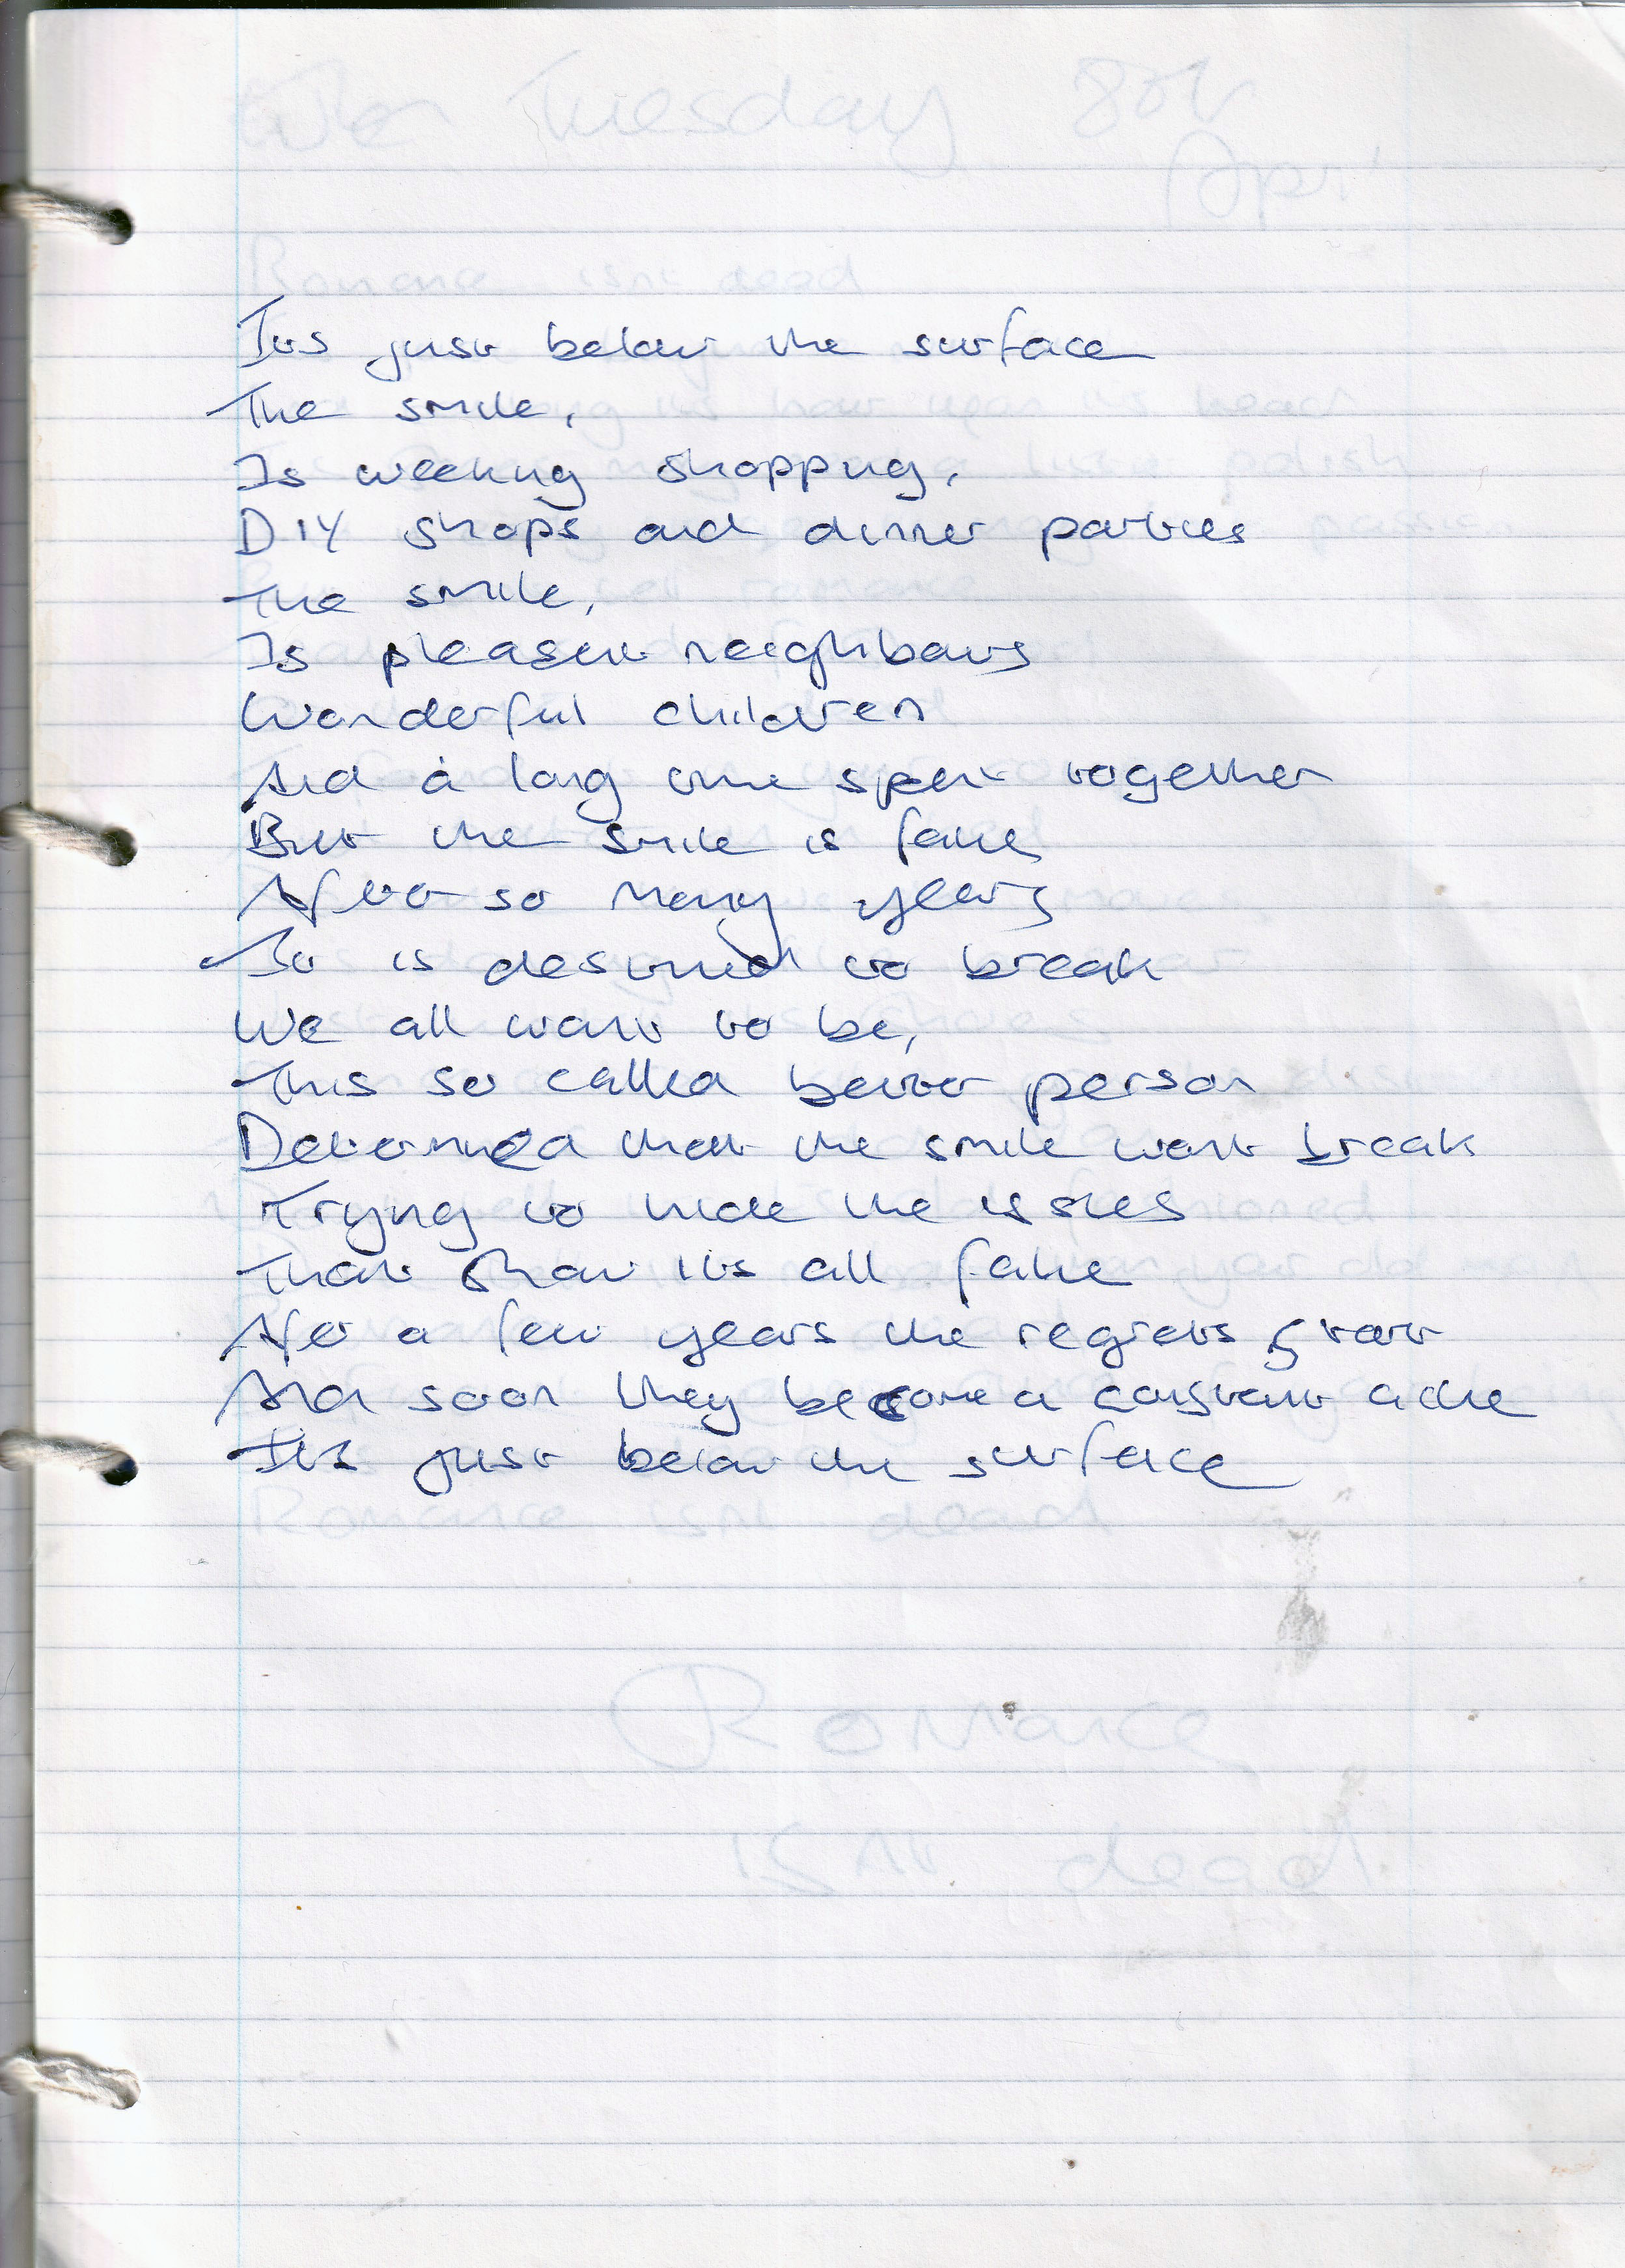 Its just below the surface
The smile,
Is weeking shopping,
DIY shops and dinner parties
The smile,
Is pleasent neighbours
Wonderful children
And a long time spent together
But the smile is fake
After so many years
It is destined to break
We all want to be,
This so called better person
Determined that the smile wont break
Trying to hide the issues
That show its all fake
After a few years the regrets grow
And soon they become a constant ache
Its just below the surface